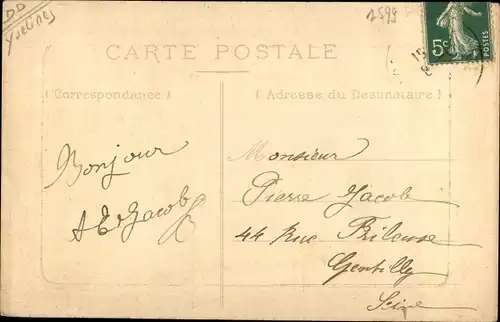 DD
Yvelines
2599
5c
POSTES
15
CARTE POSTALE
(Correspondance)
(Adresse du Destinataire)
Bonjour
Jacob
Monsieur
Pierre Jacob
44 Rue Frileuse
Gentilly
Seine